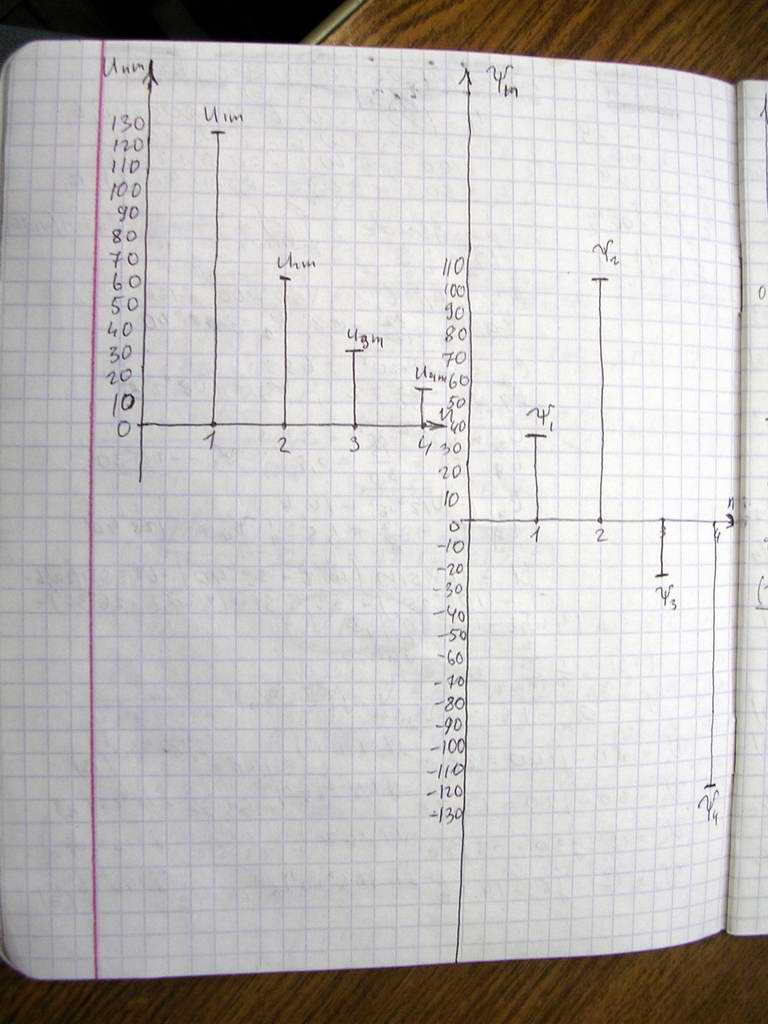 Unm
130
120
110
100
90
80
70
60
50
40
30
20
10
0
U1m
U2m
U3m
U4m
1
2
3
4
n
Ψm
110
100
90
80
70
60
50
40
30
20
10
0
-10
-20
-30
-40
-50
-60
-70
-80
-90
-100
-110
-120
-130
Ψ1
Ψ2
Ψ3
Ψ4
1
2
3
4
n